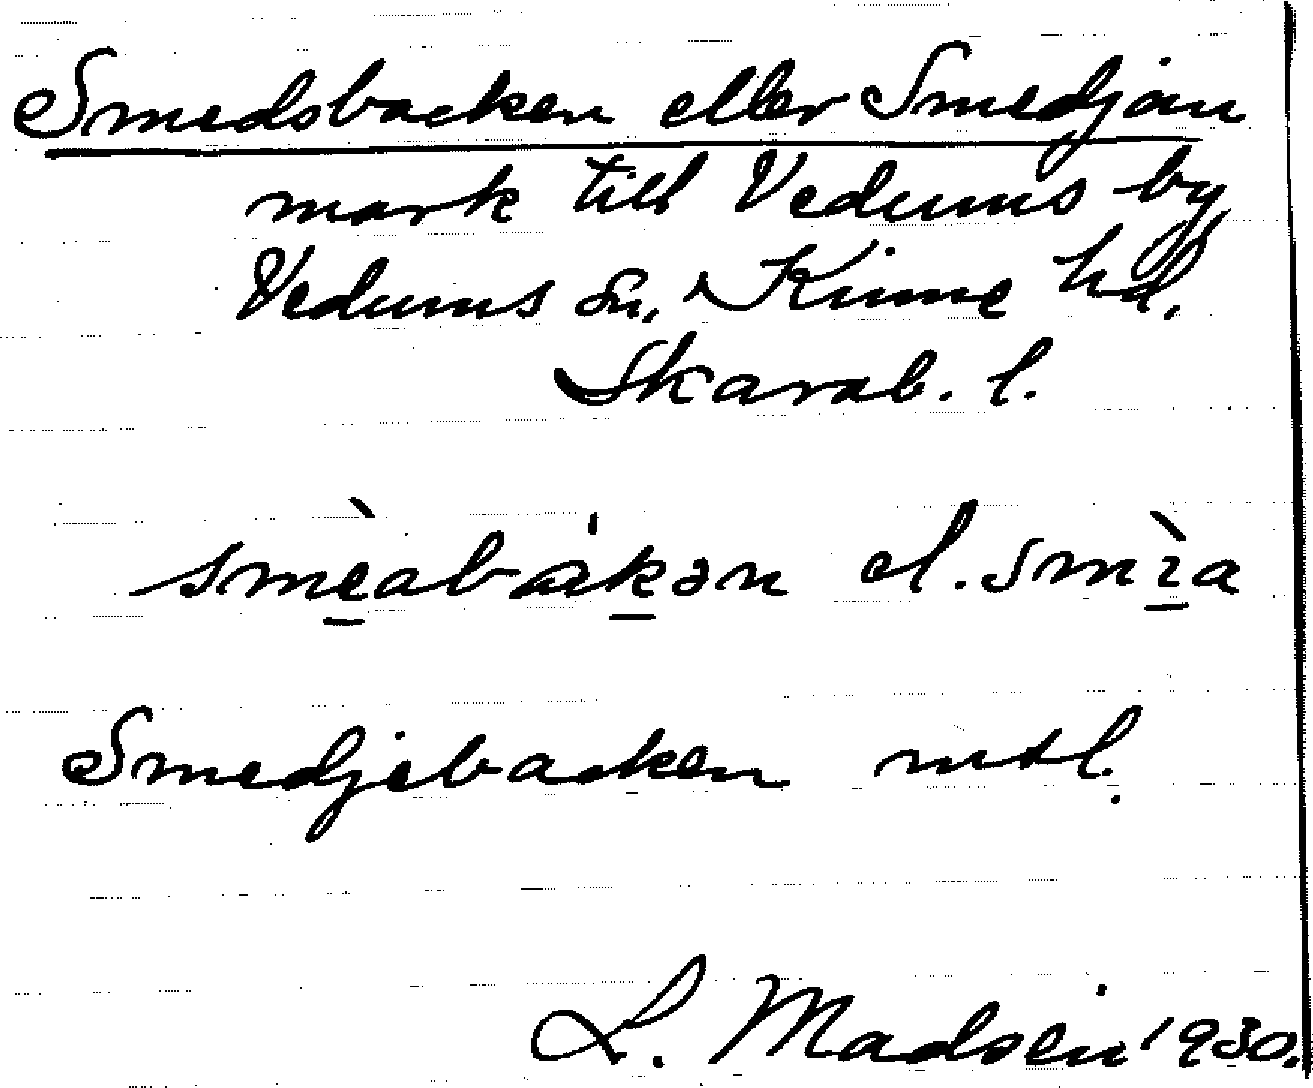 Smedsbacken eller Smedjan
mark till Vedums by
Vedums sn, Kinne hd.
Skarab. l.
smèabàkən el. smìa
Smedjebacken mtl.
L. Madsén 1930.